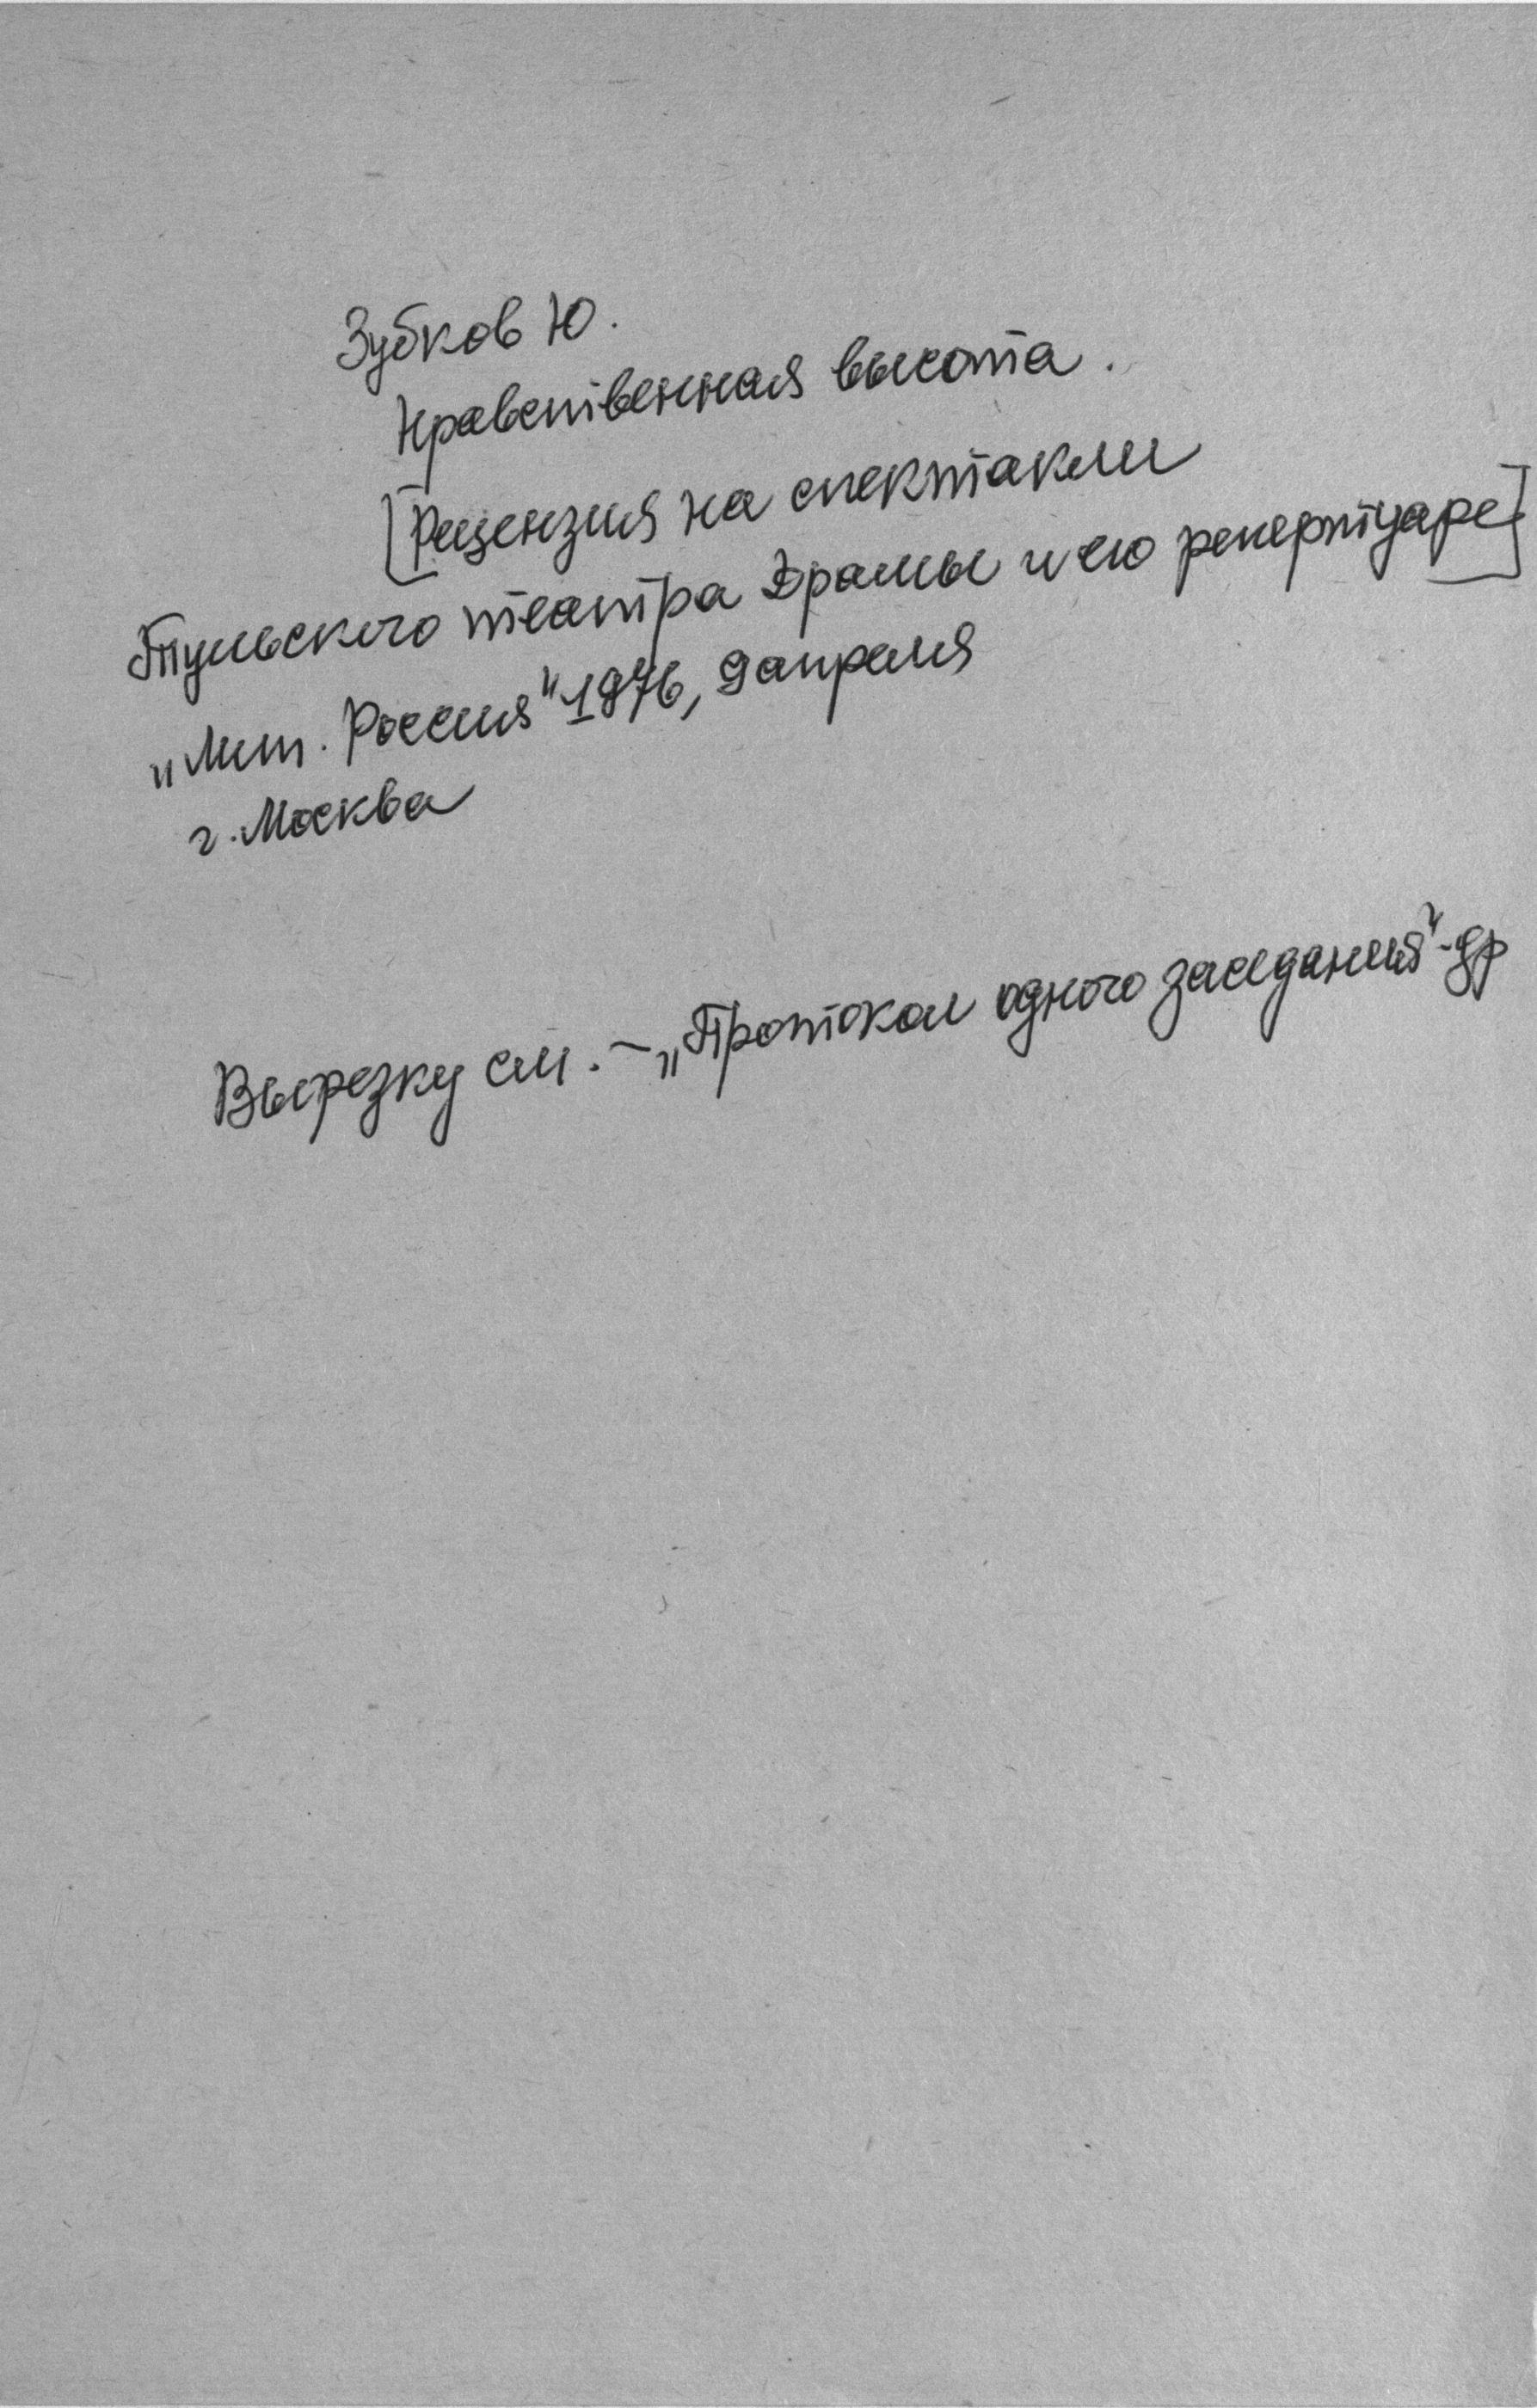 Зубков Ю.
Нравственная высота.
[Рецензия на спектакли
Тульского театра драмы и его репертуаре]
„Лит. Россия" 1976, 9 апреля
г. Москва
Вырезку см. – „Протокол одного заседания" - др